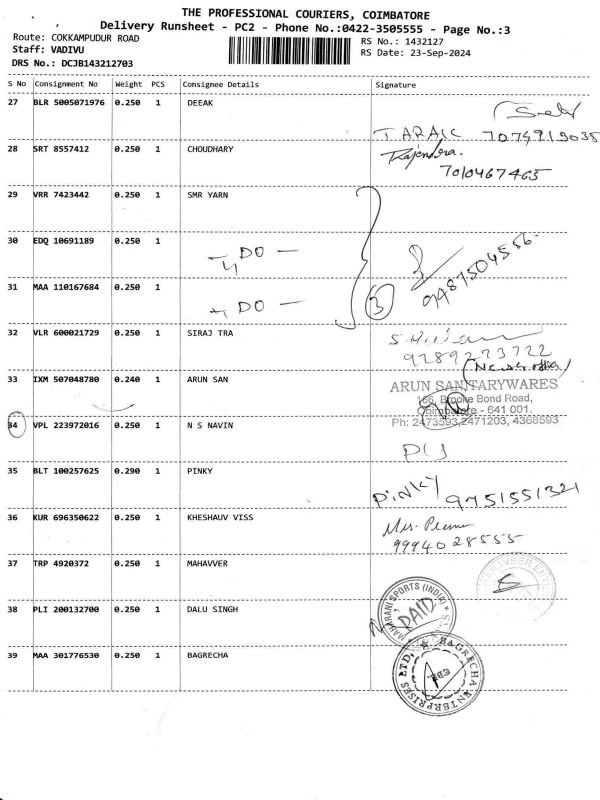 THE PROFESSIONAL COURIERS, COIMBATORE
Delivery Runsheet - PC2 - Phone No.:0422-3505555 - Page No.:3
Route: COKKAMPUDUR ROAD
RS No.: 1432127
Staff: VADIVU
RS Date: 23-Sep-2024
DRS No.: DCJB143212703
S No Consignment No Weight PCS Consignee Details Signature
27 BLR 5005071976 0.250 1 DEEAK
28 SRT 8557412 0.250 1 CHOUDHARY
Rajendra.
7010467465
29 VRR 7423442 0.250 1 SMR YARN
30 EDQ 10691189 0.250 1
- DO -
9487504556-
31 MAA 110167684 0.250 1
- DO -
3
32 VLR 600021729 0.250 1 SIRAJ TRA
9289223722
33 IXM 507048780 0.240 1 ARUN SAN
ARUN SANITARYWARES
166, Brooke Bond Road,
Coimbatore - 641 001.
Ph: 2473593,2471203, 4368593
34 VPL 223972016 0.250 1 N S NAVIN
35 BLT 100257625 0.290 1 PINKY
PINKY 9751551321
36 KUR 696350622 0.250 1 KHESHAUV VISS
9994028555
37 TRP 4920372 0.250 1 MAHAVVER
38 PLI 200132700 0.250 1 DALU SINGH
MAHARANI SPORTS (INDIA)
PAID
39 MAA 301776530 0.250 1 BAGRECHA
BAGRECHA ENTERPRISES LTD.
CBE.